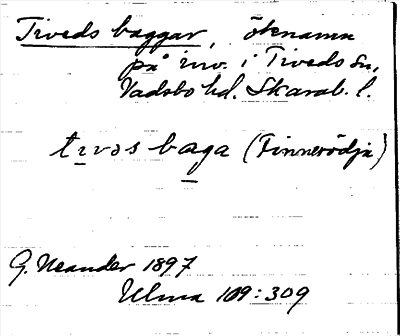 Tiveds baggar, öknamn
på inv. i Tiveds sn,
Vadsbo hd. Skarab. l.
tıvəs baga (Finnerödja)
G. Neander 1897
Ulma 109:309